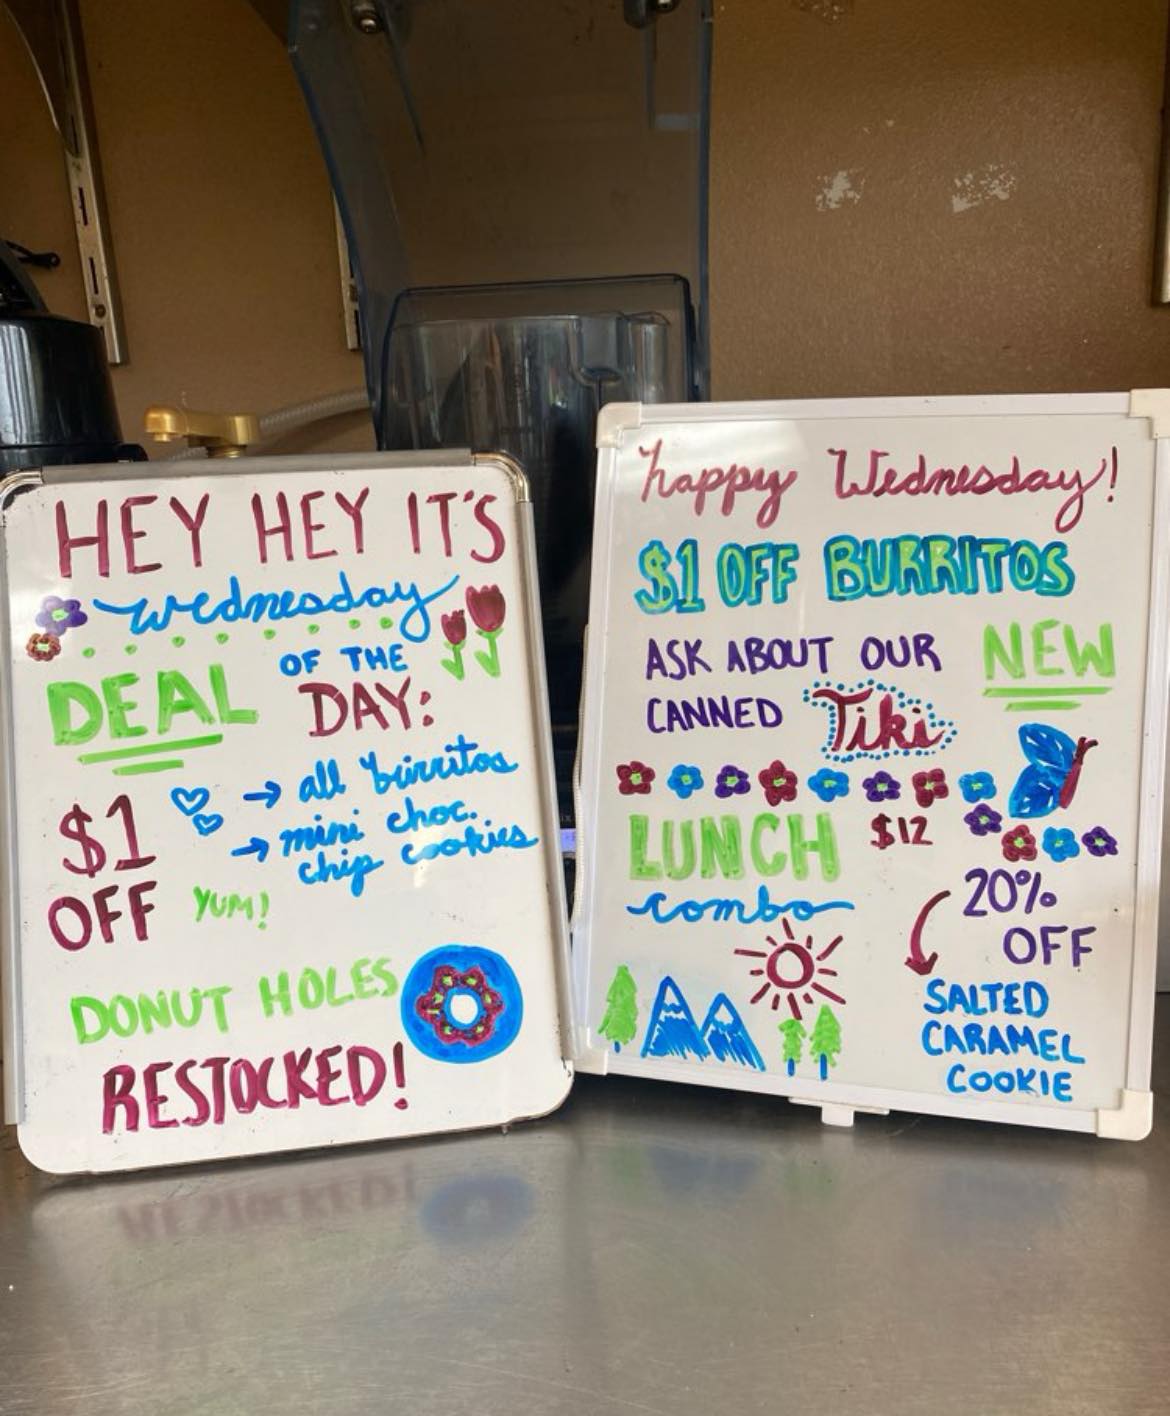 HEY HEY IT'S
wednesday
DEAL OF THE
DAY:
$1 → all burritos
→ mini choc.
chip cookies
OFF YUM!
DONUT HOLES
RESTOCKED!
happy Wednesday!
$1 OFF BURRITOS
ASK ABOUT OUR NEW
CANNED Tiki
LUNCH $12
combo
20%
OFF
SALTED
CARAMEL
COOKIE